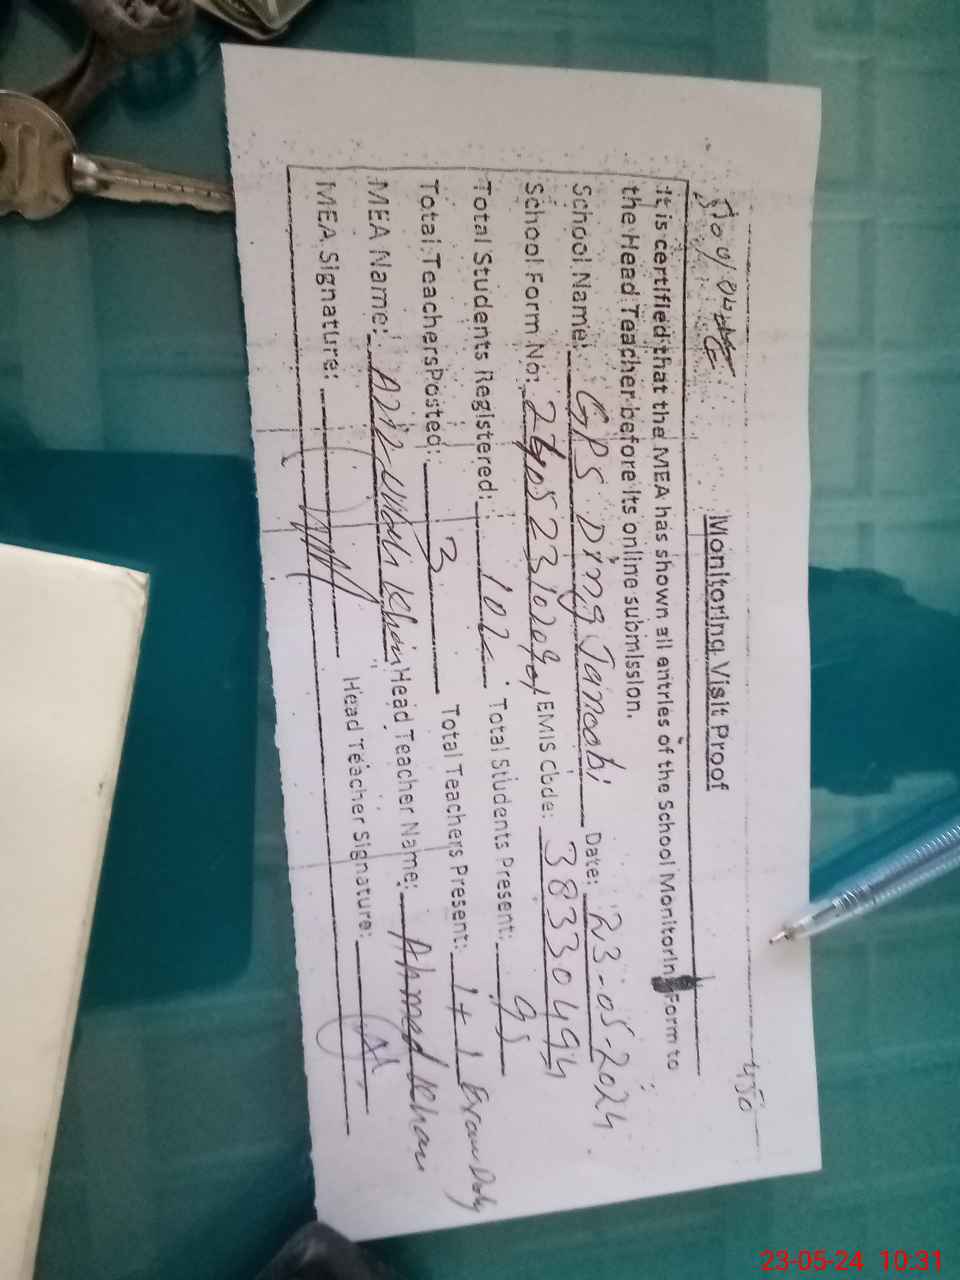 450
Monitoring Visit Proof
It is certified that the MEA has shown all entries of the School Monitoring Form to
the Head Teacher before its online submission.
School Name: GPS Ding Janoobi Date: 23-05-2024
School Form No: EMIS Code: 38330494
Total Students Registered: 102 Total Students Present: 95
Total Teachers Posted: 3 Total Teachers Present: 1+1 Exam Duty
MEA Name: Aziz Ullah Khan Head Teacher Name: Ahmed Khan
MEA Signature: Head Teacher Signature:
23-05-24 10:31